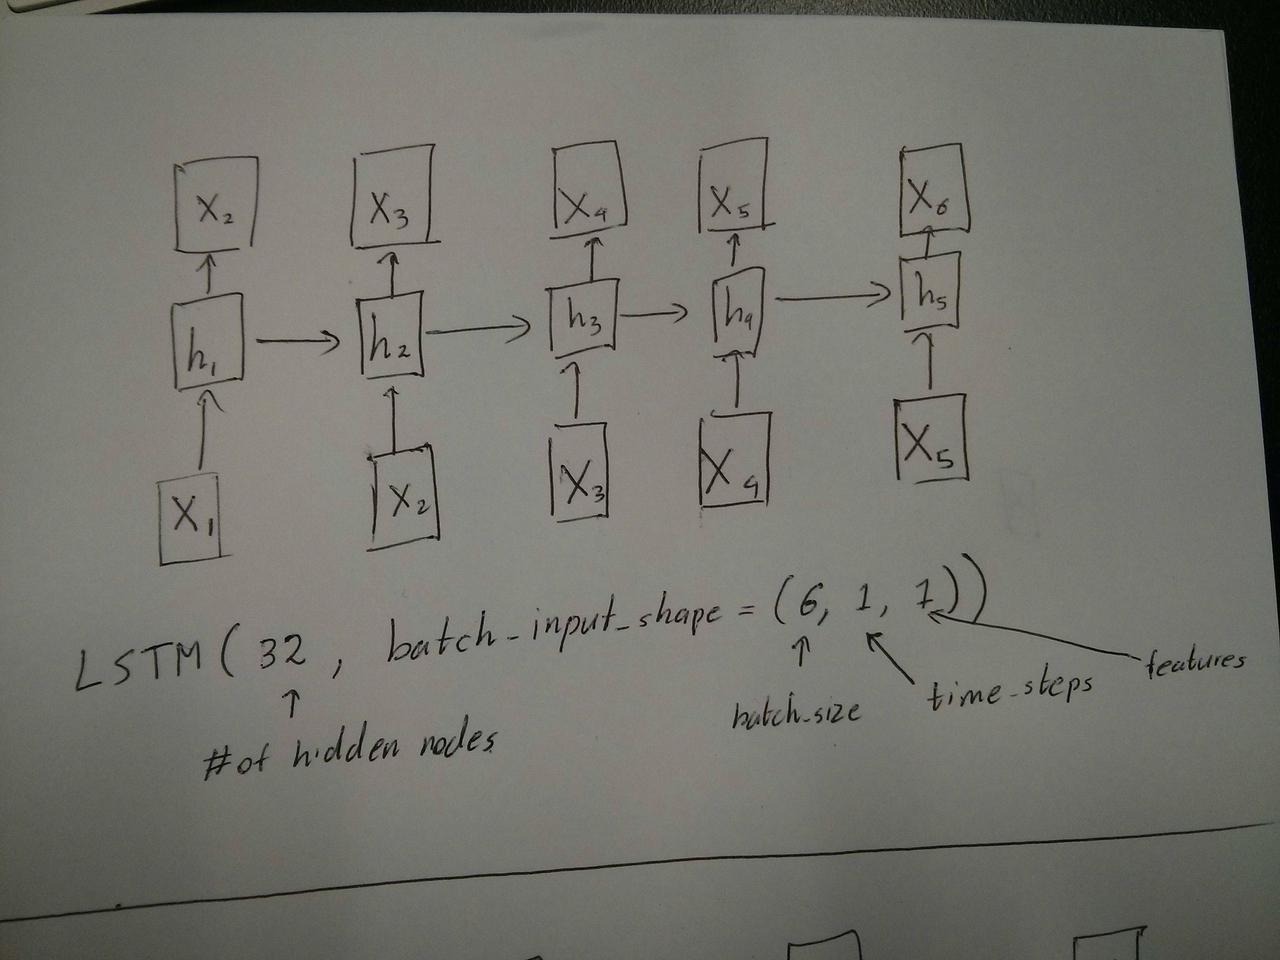 X2 X3 X4 X5 X6
h1 h2 h3 h4 h5
X1 X2 X3 X4 X5
LSTM(32, batch_input_shape = (6, 1, 1))
# of hidden nodes batch_size time_steps features